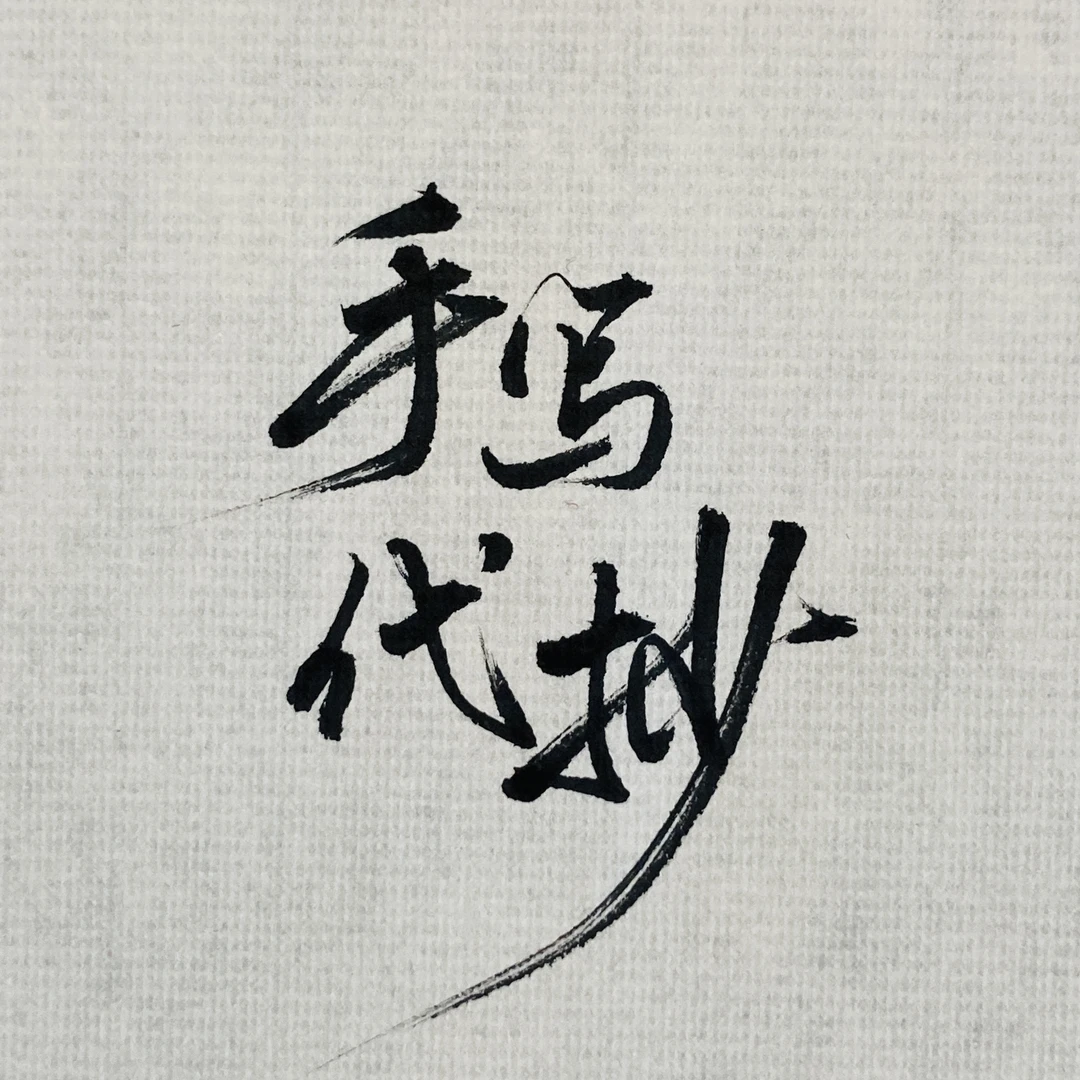 手写
代抄